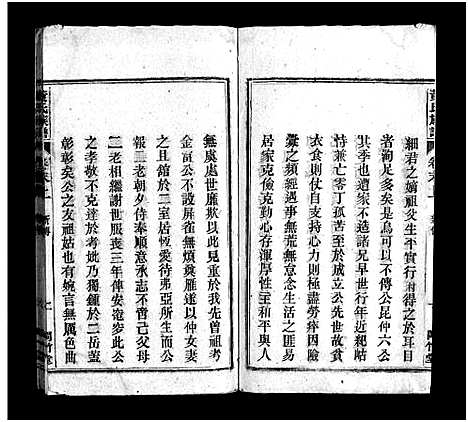 細君之嫡祖父生平實行耐得之於耳目
者洵足多矣是烏可以不傳公昆仲六公
其季也遭家不造諸兄早世行年近耙嵵
恃兼亡零丁孤苦至於成立公先世故貧
衣食則仗自支持心力則極盡勞瘁因險
釁之幾經遇事無荒無怠念生活之匪易
居家克儉克勤心存渾厚性主和平與人
無虞處世廉欺以此見重於我先曾祖考
金言公不設屏雀無煩奠雁遂以仲女妻
之且館於二室居恆愛待弗亞所生而公
報二老朝夕侍奉順意承志不僅父母
二老相繼謝世服喪三年俾安窀穸此公
之孝敬不克達於考妣乃獨鍾於二岳蓋
彰彰矣公之友祖姑也有婉言無厲色曲
董氏族譜
卷末上